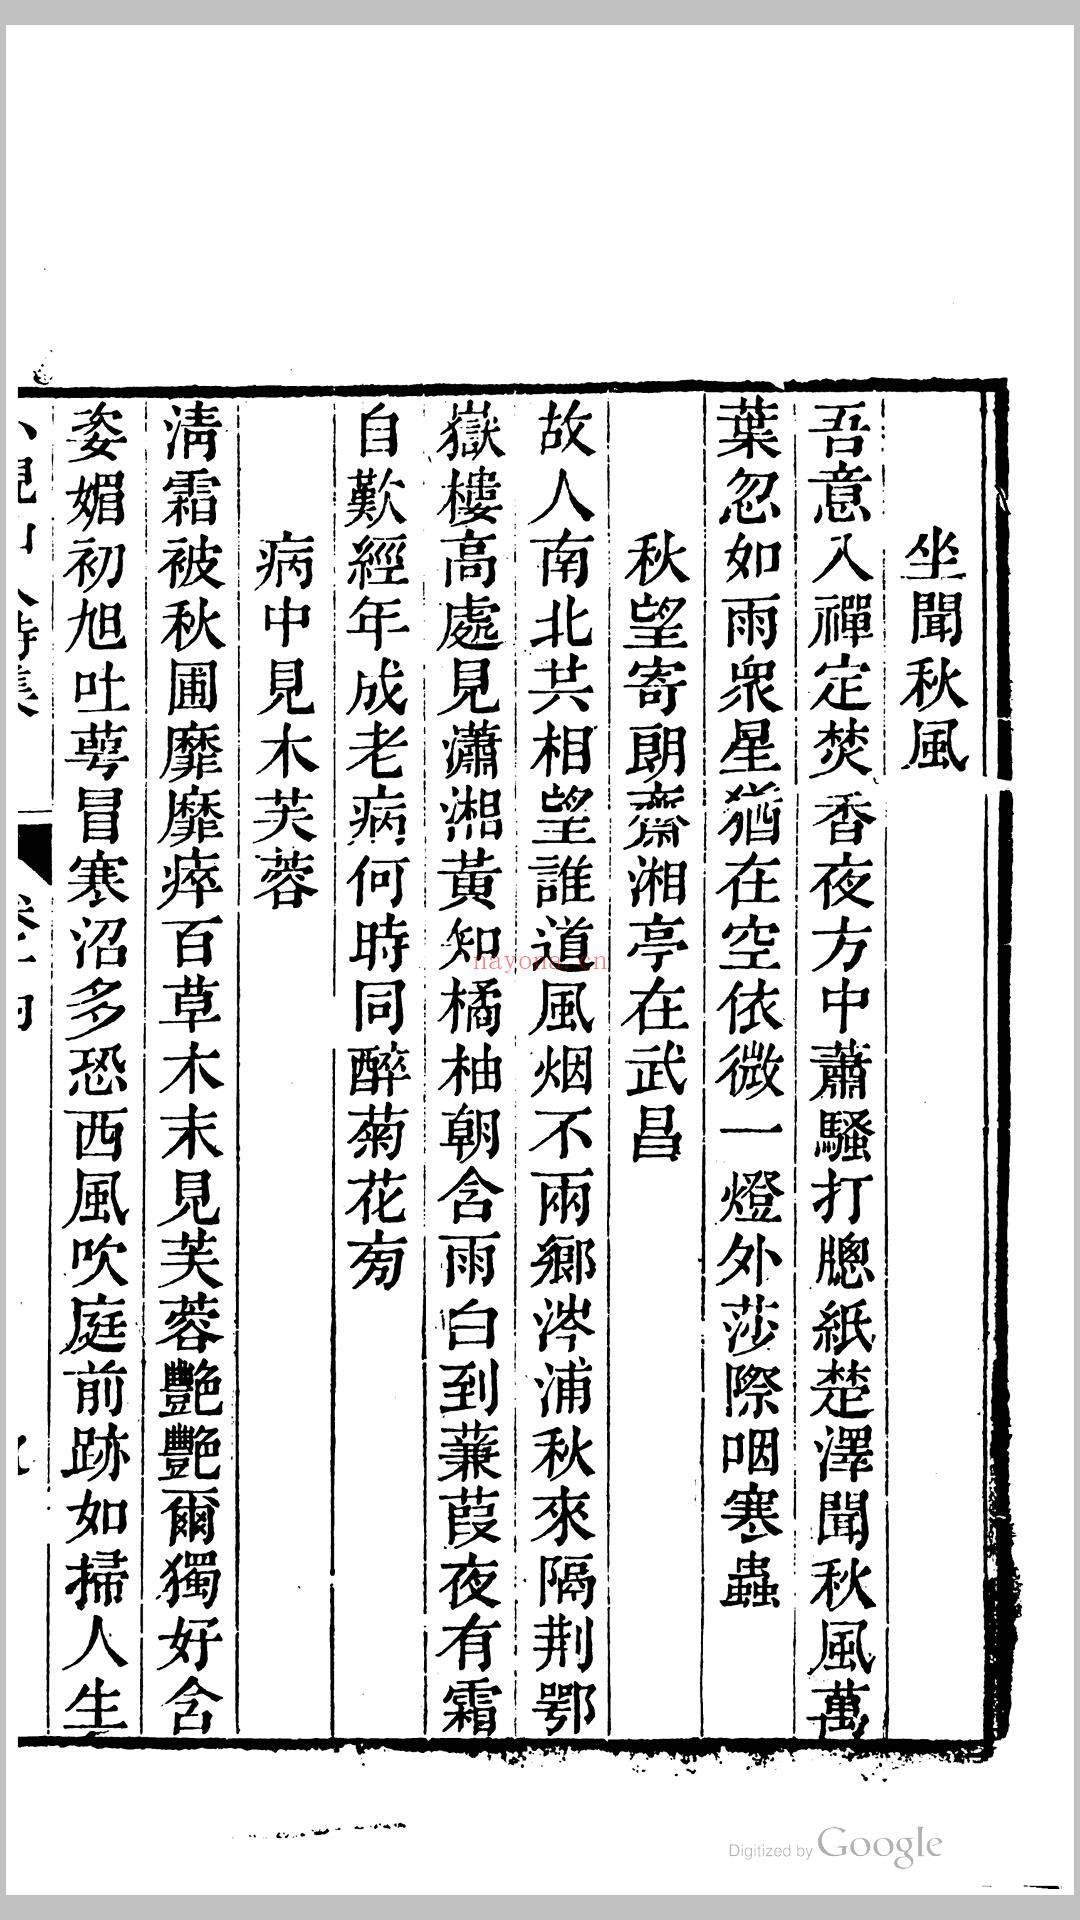 坐聞秋風
吾意入禪定焚香夜方中蕭騷打牕紙楚澤聞秋風萬
葉忽如雨衆星猶在空依微一燈外莎際咽寒蟲
秋望寄朗齋湘亭在武昌
故人南北共相望誰道風烟不兩鄉涔浦秋來隔荆鄂
嶽樓高處見瀟湘黃知橘柚朝含雨白到蒹葭夜有霜
自歎經年成老病何時同醉菊花旁
病中見木芙蓉
清霜被秋圃靡靡瘁百草木末見芙蓉艷艷爾獨好含
姿媚初旭吐萼冒寒沼多恐西風吹庭前跡如掃人生
nayona.cn
Digitized by Google